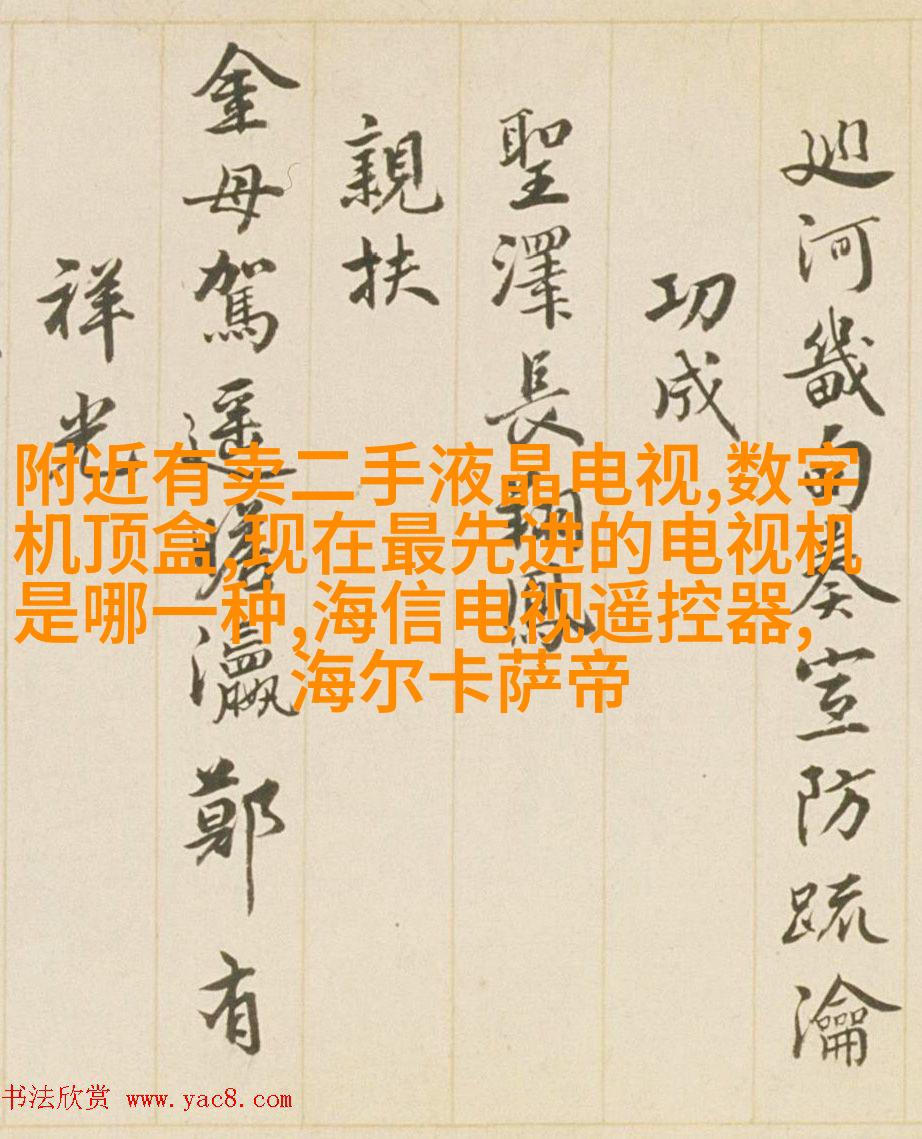 巡河畿甸奏宣防疏瀹
功成
聖澤長翔鳳
親扶
金母駕遥瀛鄭有
祥光
附近有卖二手液晶电视,数字
机顶盒,现在最先进的电视机
是哪一种,海信电视遥控器,
海尔卡萨帝
书法欣赏 www.yac8.com